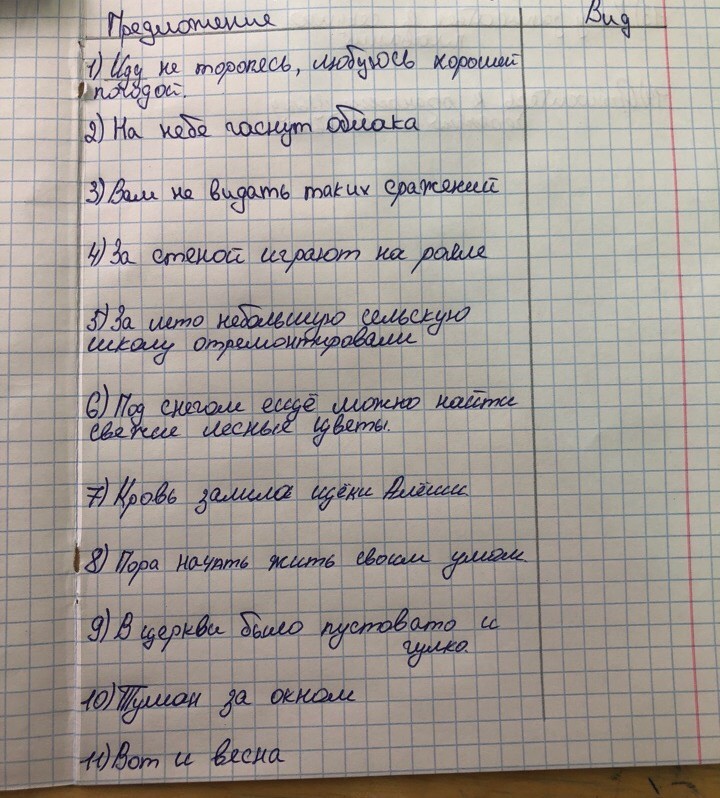 Предложение Вид
1) Иду не торопясь, любуюсь хорошей
погодой.
2) На небе гаснут облака
3) Вам не видать таких сражений
4) За стеной играют на рояле
5) За лето небольшую сельскую
школу отремонтировали
6) Под снегом ещё можно найти
свежие лесные цветы.
7) Кровь залила щёки Алёши.
8) Пора начать жить своим умом
9) В церкви было пустовато и
гулко.
10) Туман за окном
11) Вот и весна